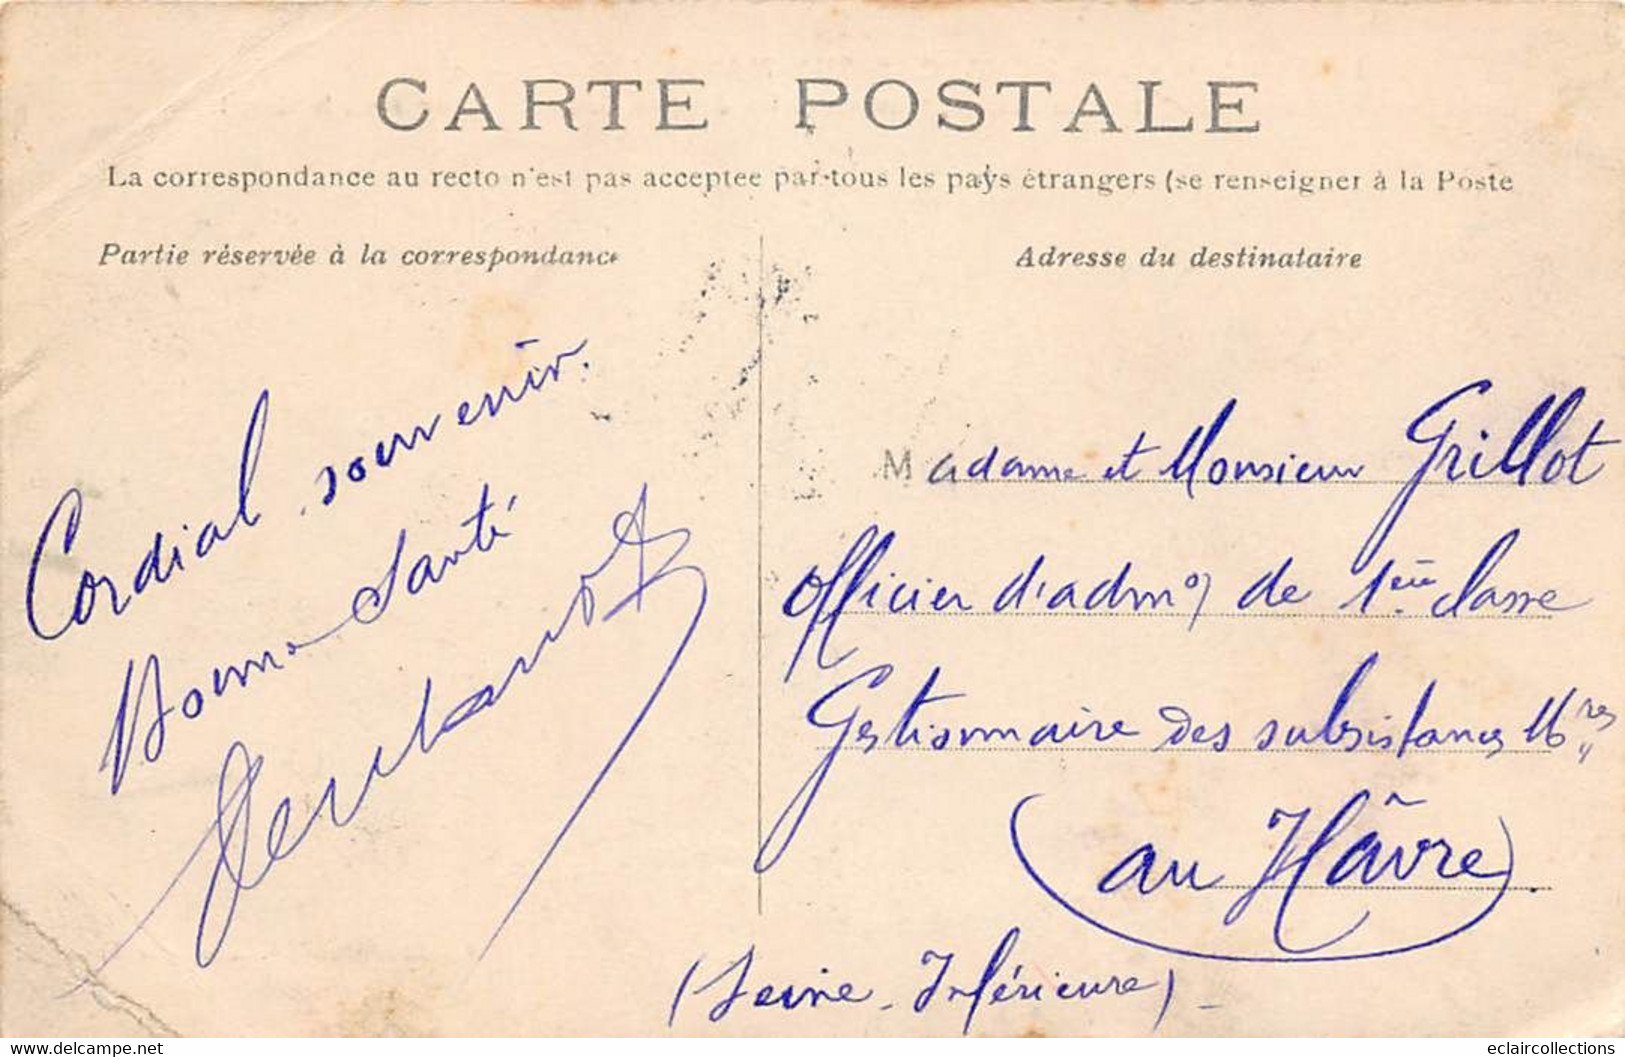 CARTE POSTALE
La correspondance au recto n'est pas acceptée par tous les pays étrangers (se renseigner à la Poste
Partie réservée à la correspondance
Cordial souvenir.
Bonne Santé
Adresse du destinataire
Madame et Monsieur Grillot
Officier d'admon de 1ère classe
Gestionnaire des subsistances Mres
(au Hâvre)
(Seine-Inférieure)
www.delcampe.net
eclaircollections